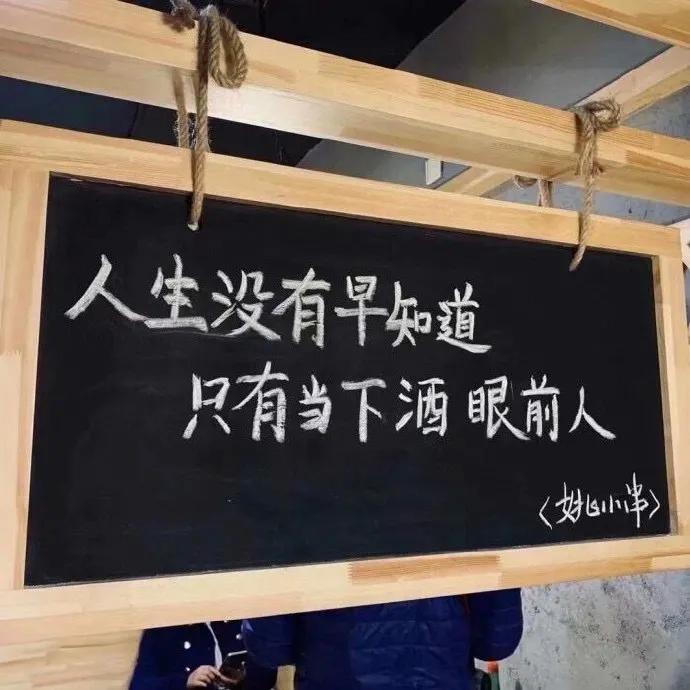 人生没有早知道
只有当下酒 眼前人
小串